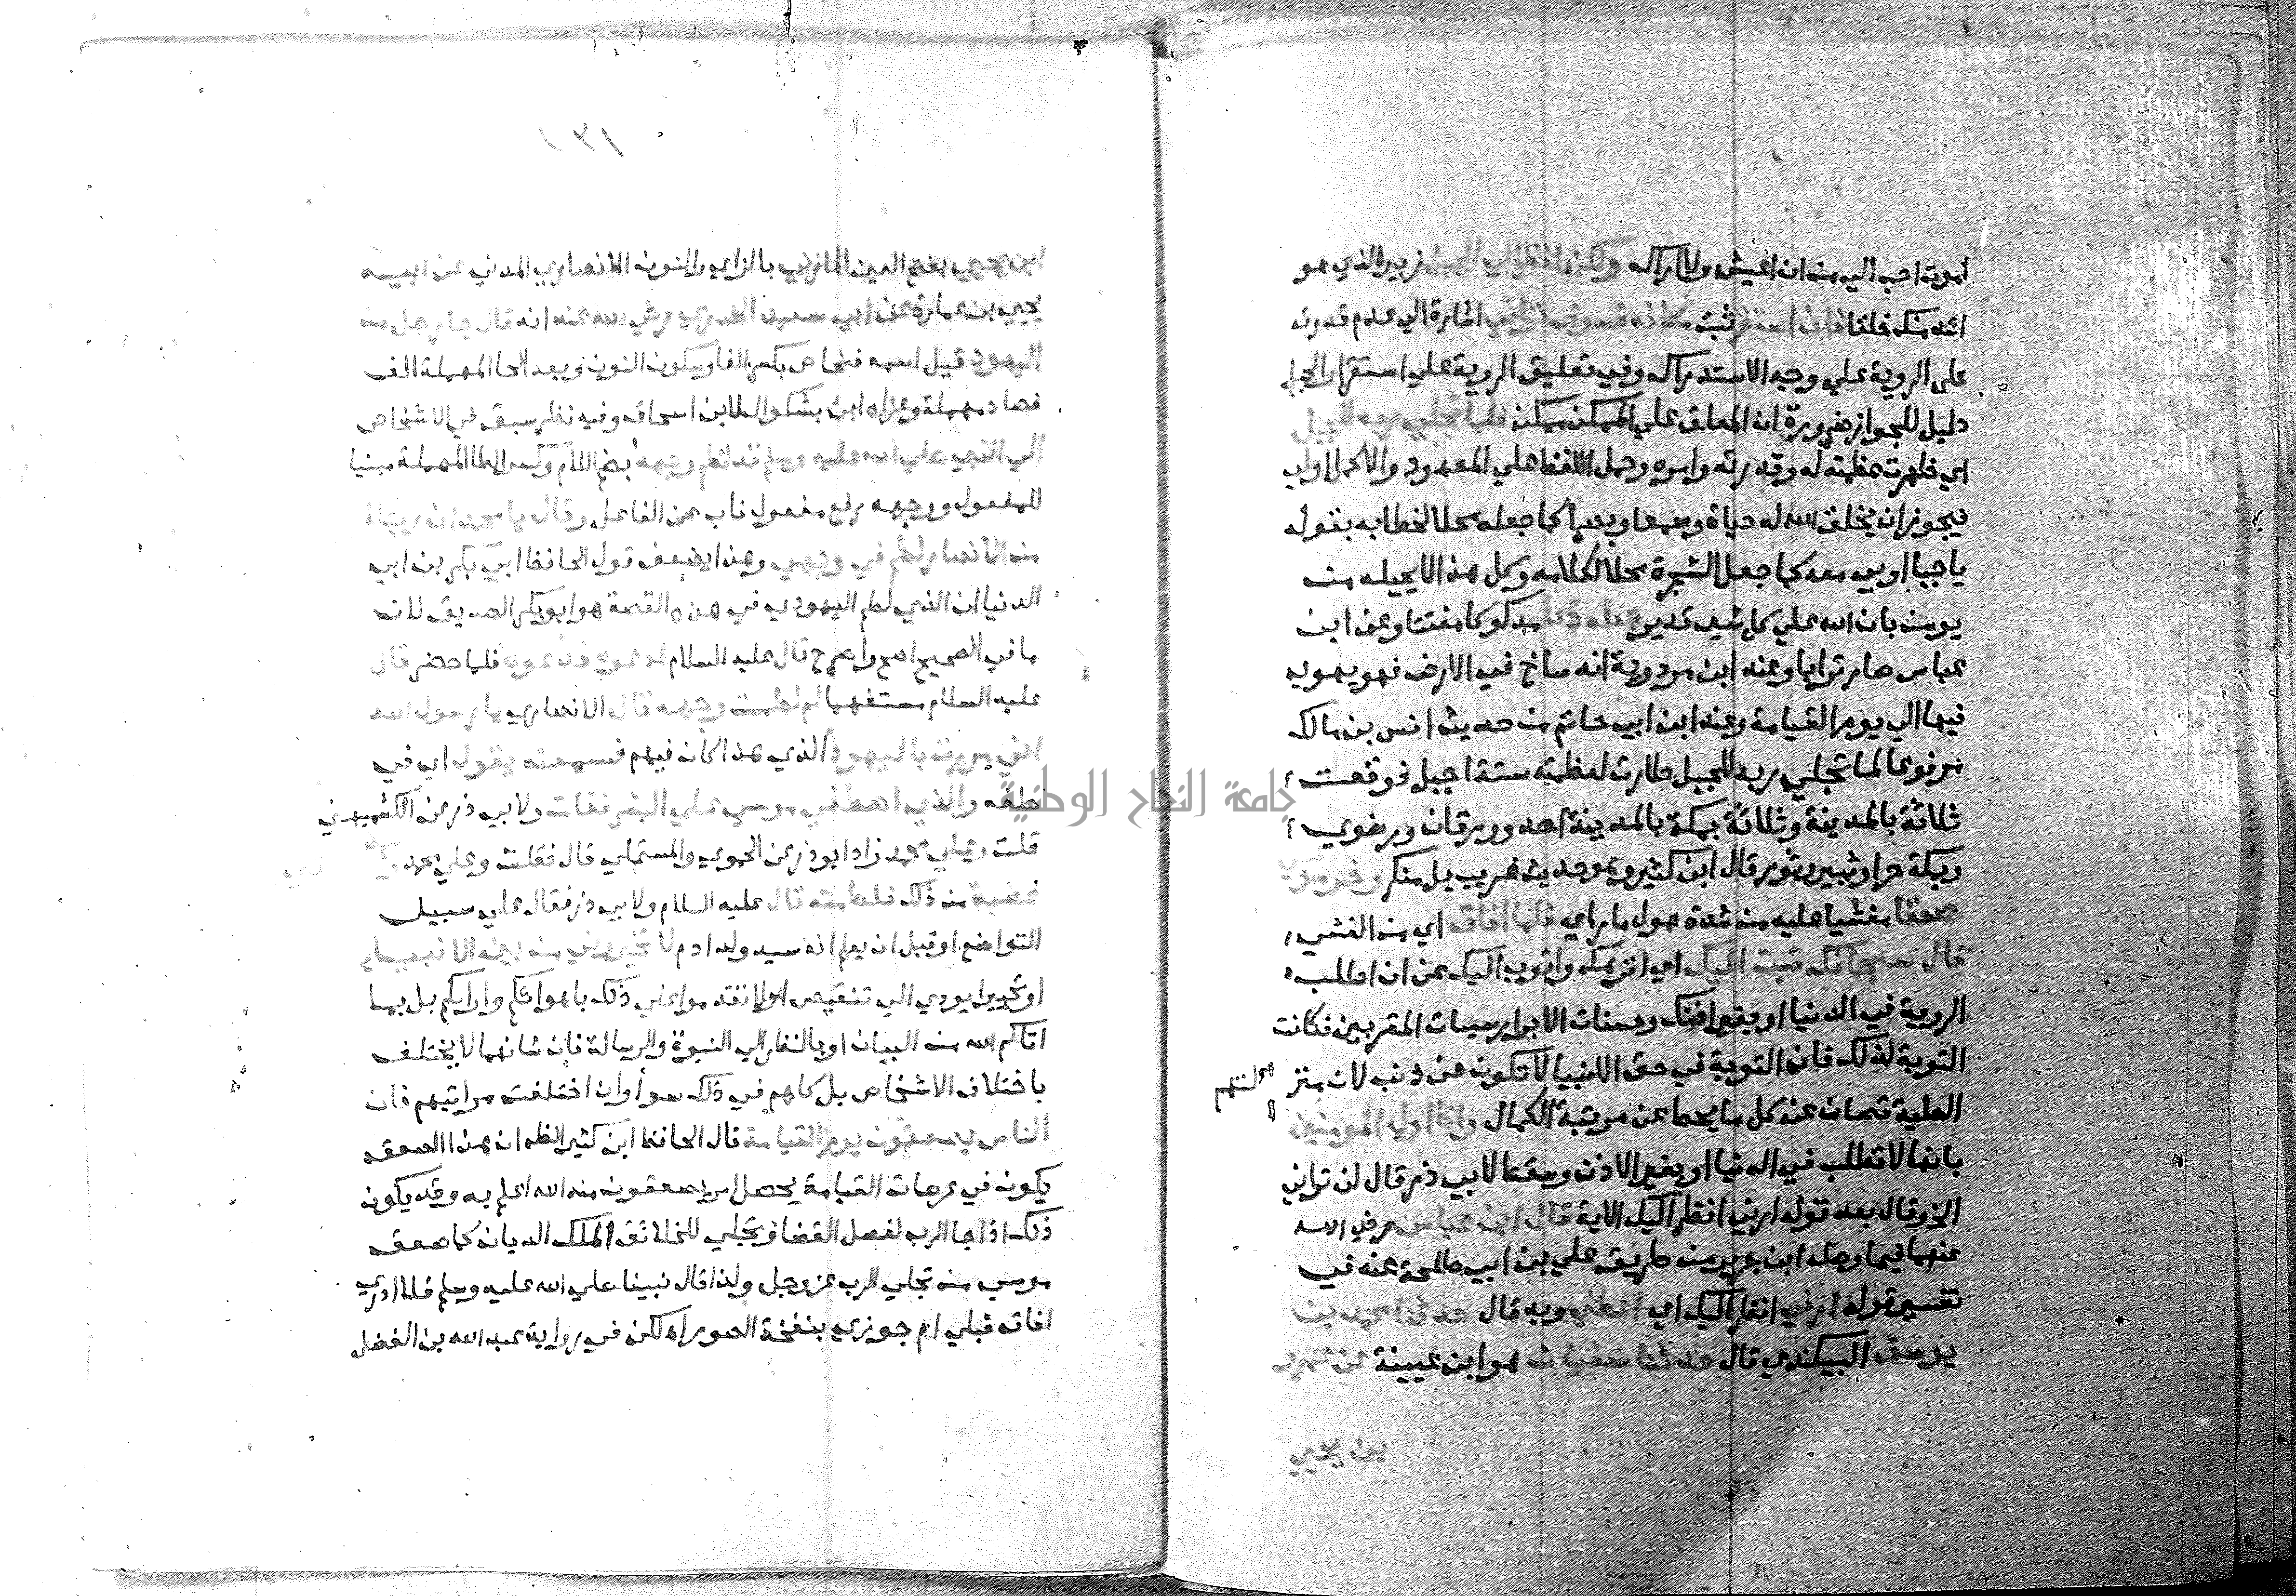 اموت احب الي من ان اعيش ولا اراك ولكن انظر الي الجبل زبير الذي هو
اشد منك خلقا فان استقر ثبت مكانه فسوف تراني اشارة الي عدم قدرته
علي الروية علي وجه الاستدراك وفي تعليق الروية علي استقرار الجبل
دليل للجواز ضرورة ان المعلق علي الممكن ممكن فلما تجلي ربه للجبل
اي ظهرت عظمته له وقدرته وامره وحمل اللفظ علي المعهود والاكمل اولي
فيجوز ان يخلق الله له حياة وسمعا وبصرا كما جعله محلا لخطابه بقوله
يا جبال اوبي معه كما جعل الشجرة محلا لكلامه وكل هذا لا يحيله من
يومن بان الله علي كل شي قدير جعله دكا مدكوكا مفتتا وعن ابن
عباس صار ترابا وعند ابن مردوية انه ساخ في الارض فهو يهوي
فيها الي يوم القيامة وعند ابن ابي حاتم من حديث انس بن مالك
مرفوعا لما تجلي ربه للجبل طارت لعظمته ستة اجبل فوقعت
ثلاثة بالمدينة وثلاثة بمكة بالمدينة احد وورقان ورضوي
وبمكة حرا وثبير وثور قال ابن كثير وهو حديث غريب بل منكر وخر موسي
صعقا مغشيا عليه من شدة هول ما راي فلما افاق اي من الغشي
قال سبحانك تبت اليك اي انزهك واتوب اليك عن ان اطلب
الروية في الدنيا او بغير اذنك وحسنات الابرار سيات المقربين فكانت
التوبة لذلك فان التوبة في حق الانبيا لا تكون عن ذنب لان منزلتهم
العلية تصان عن كل ما يحط عن مرتبة الكمال وانا اول المومنين
بانها لا تطلب في الدنيا او بغير الاذن وسقط لابي ذر قال لن تراني
الخ وقال بعد قوله ارني انظر اليك الاية قال ابن عباس رضي الله
عنهما فيما وصله ابن جرير من طريق علي بن ابي طلحة عنه في
تفسير قوله ارني انظر اليك اي اعطني وبه قال حدثنا محمد بن
يوسف البيكندي قال حدثنا سفيان هو ابن عيينة عن عمرو
بن يحيي
١٣١
ابن يحيي بفتح العين المازني بالزاي والنون الانصاري المدني عن ابيه
يحيي بن عمارة عن ابي سعيد الخدري رضي الله عنه انه قال جا رجل من
اليهود قيل اسمه فنحاص بكسر الفا وسكون النون وبعد الحا المهملة الف
فصاد مهملة وعزاه ابن بشكوال لابن اسحاق وفيه نظر سبق في الاشخاص
الي النبي صلي الله عليه وسلم قد لطم وجهه بضم اللام وكسر الطا المهملة مبنيا
للمفعول ووجهه رفع مفعول ناب عن الفاعل وقال يا محمد ان رجلا
من الانصار لطم في وجهي وهذا يضعف قول الحافظ ابي بكر بن ابي
الدنيا ان الذي لطم اليهودي في هذه القصة هو ابو بكر الصديق لان
ما في الصحيح اصح واصرح قال عليه السلام ادعوه فدعوه فلما حضر قال
عليه السلام مستفهما لم لطمت وجهه قال الانصاري يا رسول الله
اني مررت باليهود الذي هذا كان فيهم فسمعته يقول اي في
حلفه والذي اصطفي موسي علي البشر فقلت ولابي ذر عن الكشميهني
قلت وعلي محمد زاد ابو ذر عن الحموي والمستملي قال فقلت وعلي محمد
غضبة من ذلك فلطمته قال عليه السلام ولابي ذر فقال علي سبيل
التواضع او قبل ان يعلم انه سيد ولد ادم لا تخيروني من بين الانبيا
او تخييرا يودي الي تنقيص او لا تقدموا علي ذلك باهوائكم وارايكم بل بما
اتاكم الله من البيان او بالنظر الي النبوة والرسالة فان شانهما لا يختلف
باختلاف الاشخاص بل كلهم في ذلك سوا وان اختلفت مراتبهم فان
الناس يصعقون يوم القيامة قال الحافظ ابن كثير الظاهر ان هذا الصعق
يكون في عرصات القيامة يحصل امر يصعقون منه الله اعلم به وقد يكون
ذلك اذا جا الرب لفصل القضا وتجلي للخلائق الملك الديان كما صعق
موسي من تجلي الرب عز وجل ولذا قال نبينا صلي الله عليه وسلم فلا ادري
افاق قبلي ام جوزي بنفخة الصور اه لكن في رواية عبد الله بن الفضل
جامعة النجاح الوطنية